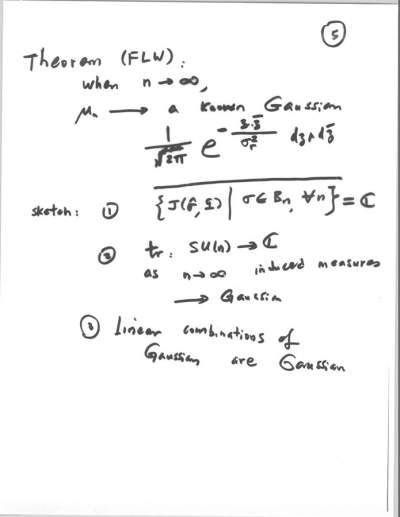 5
Theorem (FLW):
when n → ∞,
μn → a known Gaussian
1/√2π e^{-z·z̄/σr²} dz∧dz̄
sketch: ① {J(σ̂, ξ) | σ ∈ Bn, ∀n} = ℂ
② tr: SU(n) → ℂ
as n → ∞ induced measures
→ Gaussian
③ Linear combinations of
Gaussian are Gaussian